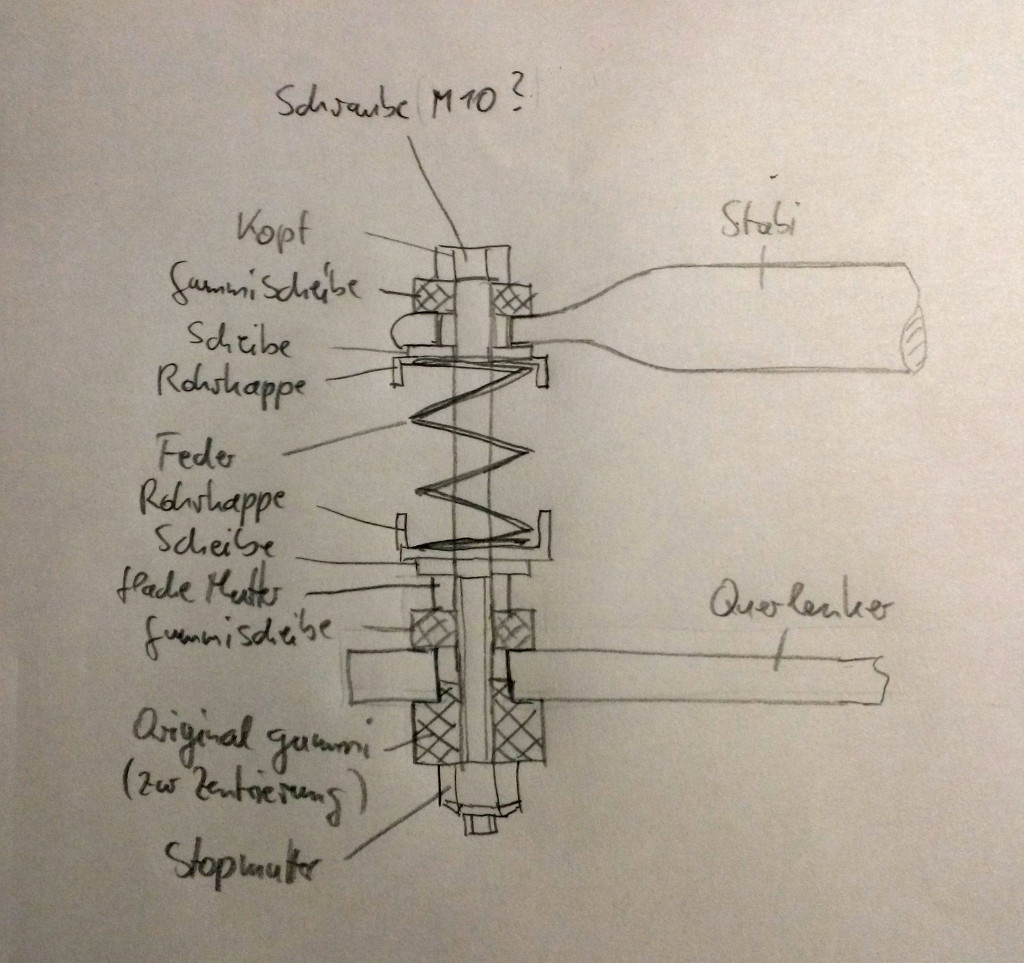 Schraube M10?
Stabi
Kopf
Gummischeibe
Scheibe
Rohrkappe
Feder
Rohrkappe
Scheibe
flache Mutter
Querlenker
Gummischeibe
Original gummi
(zur Zentrierung)
Stopmutter